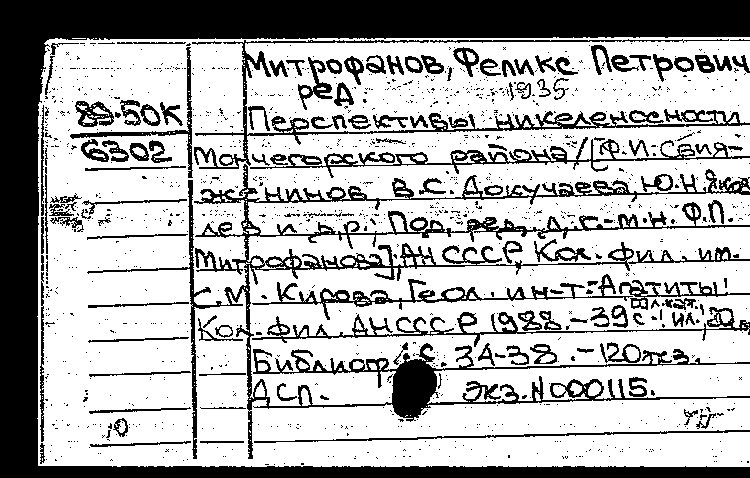 Митрофанов, Феликс Петрович
ред. 1935
89-50К
Перспективы никеленосности
6302
Мончегорского района/[Ф.И. Свия-
женинов, В.С. Докучаева, Ю.Н. Яков
лев и др.; Под ред. д.г.-м.н. Ф.П.
Митрофанова]; АН СССР, Кол. фил. им.
С.М. Кирова, Геол. ин-т.- Апатиты:
Кол. фил. АН СССР, 1988.-39 с.: ил.; 20
Библиогр.: с. 34-38.-120 экз.
ДСП. Экз. N 000115.
10